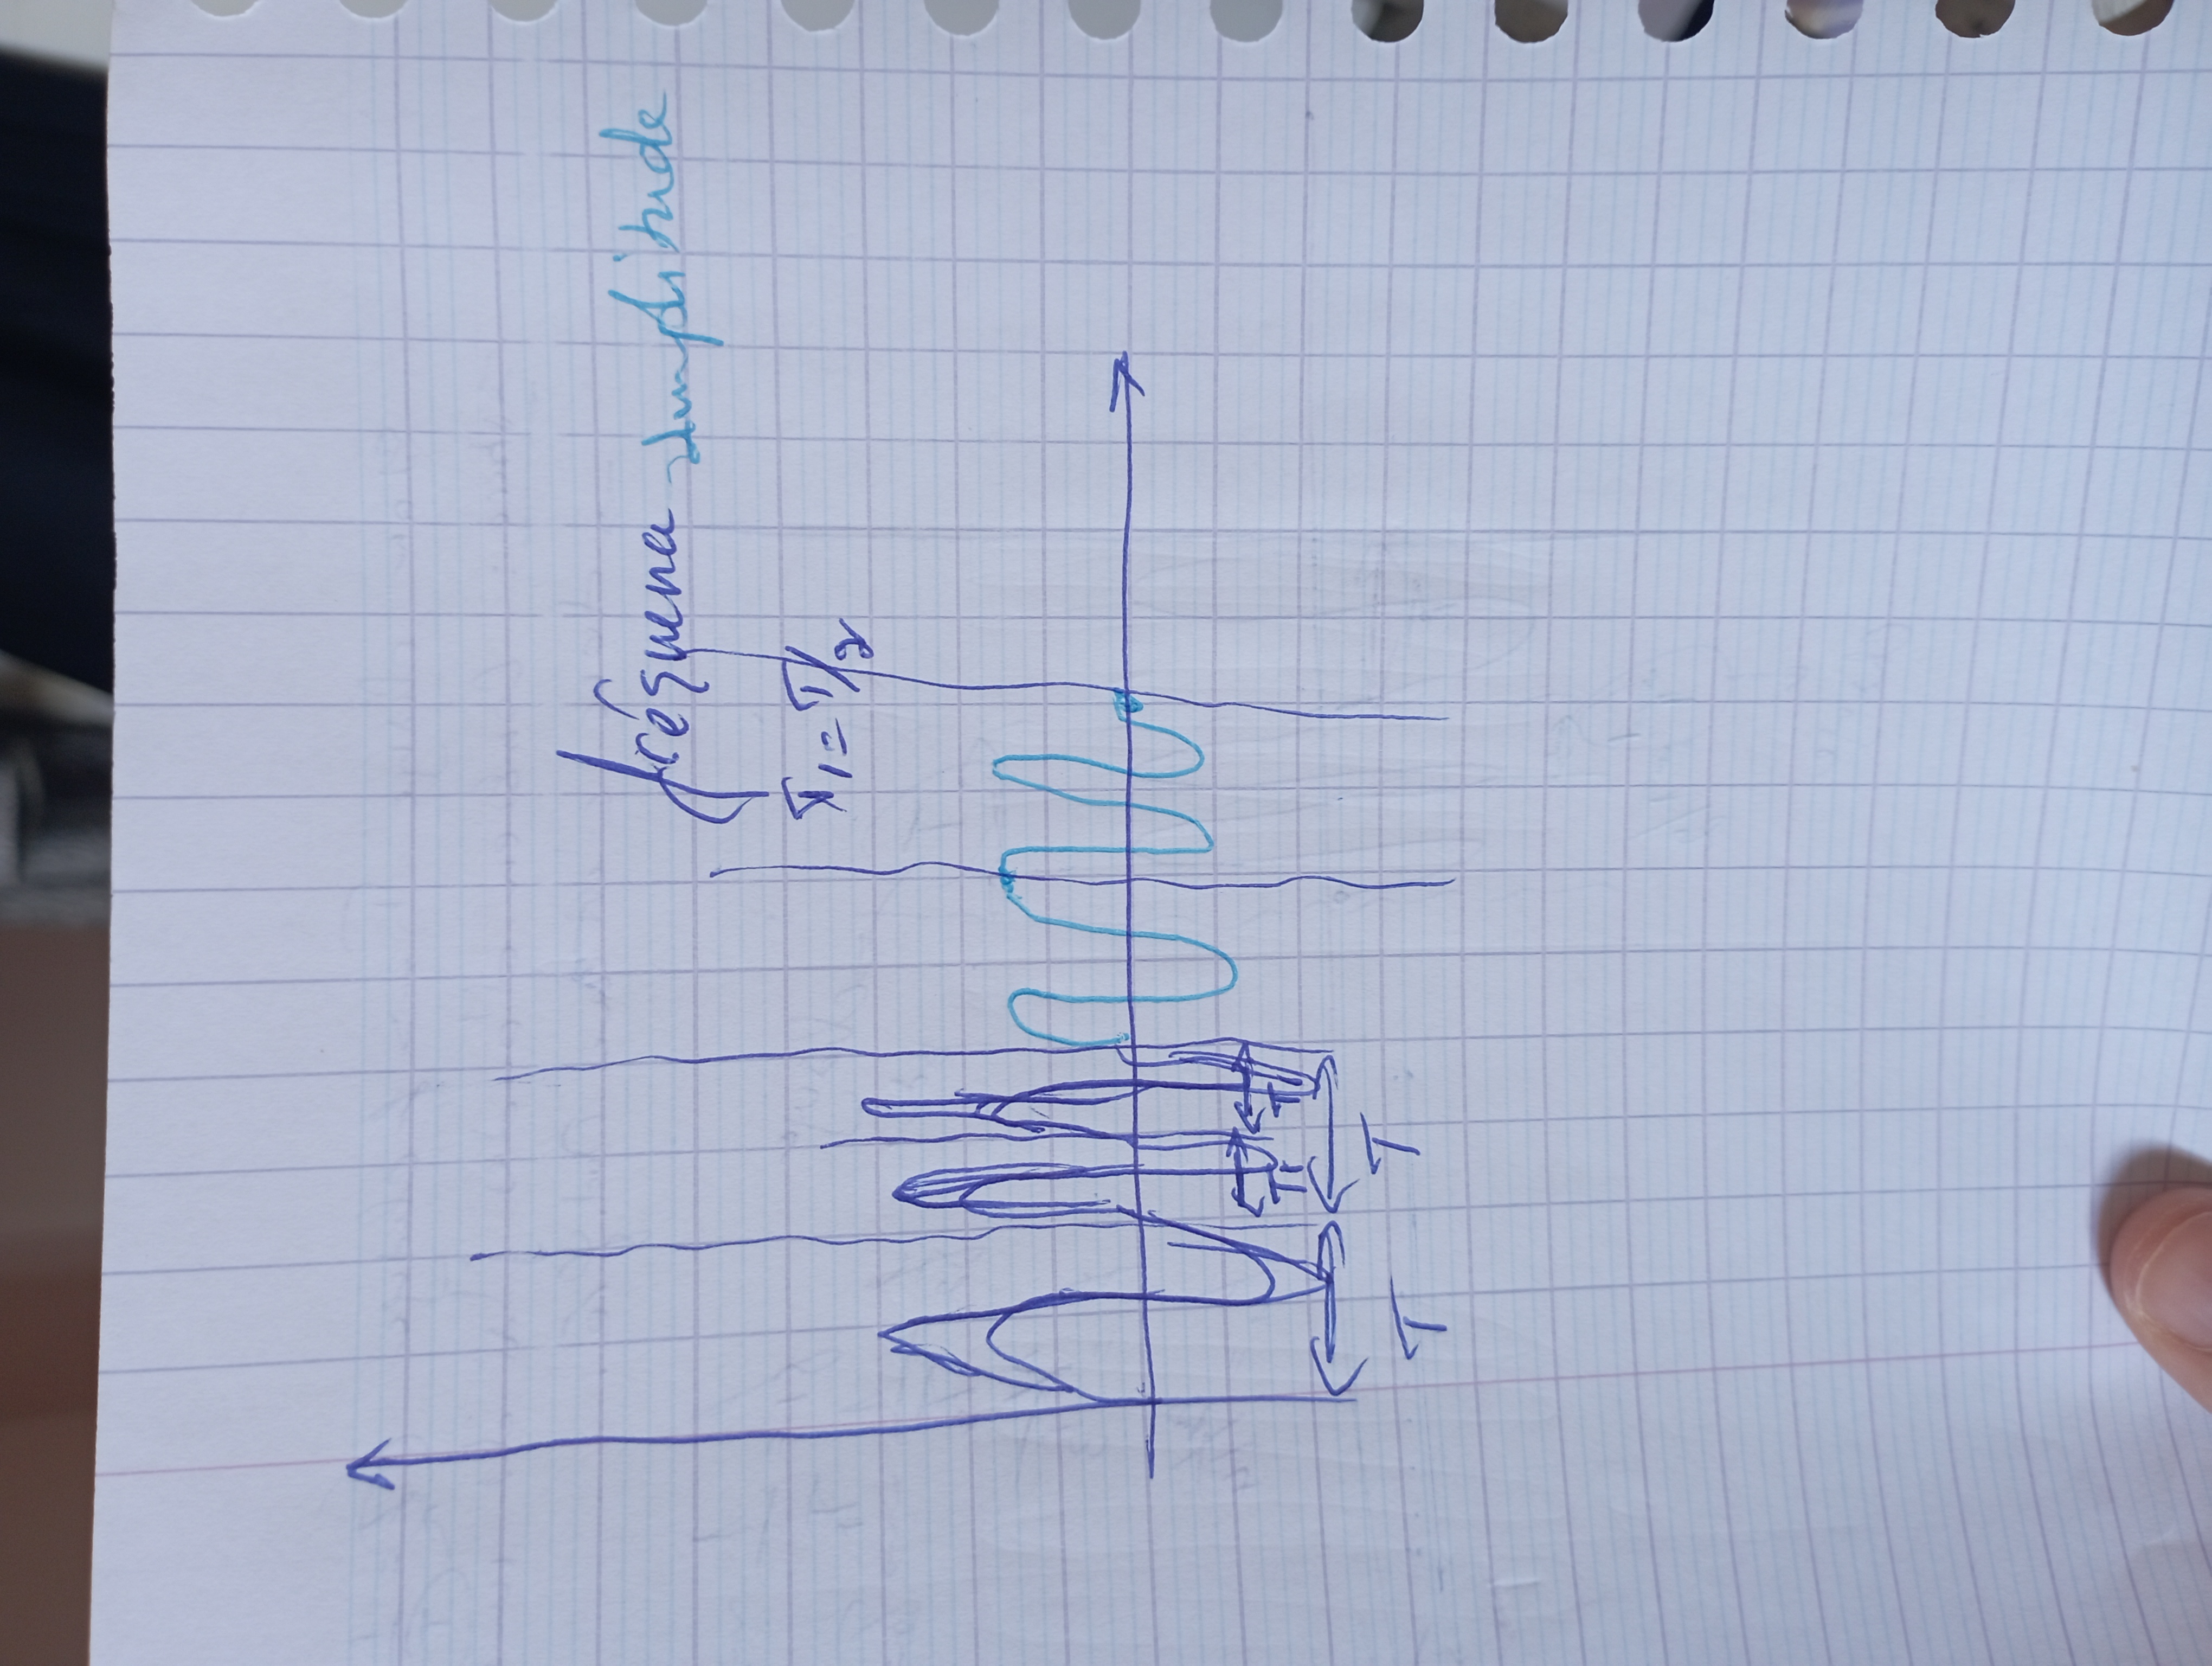 fréquence amplitude
T1 = T/2
T1 T1
T T